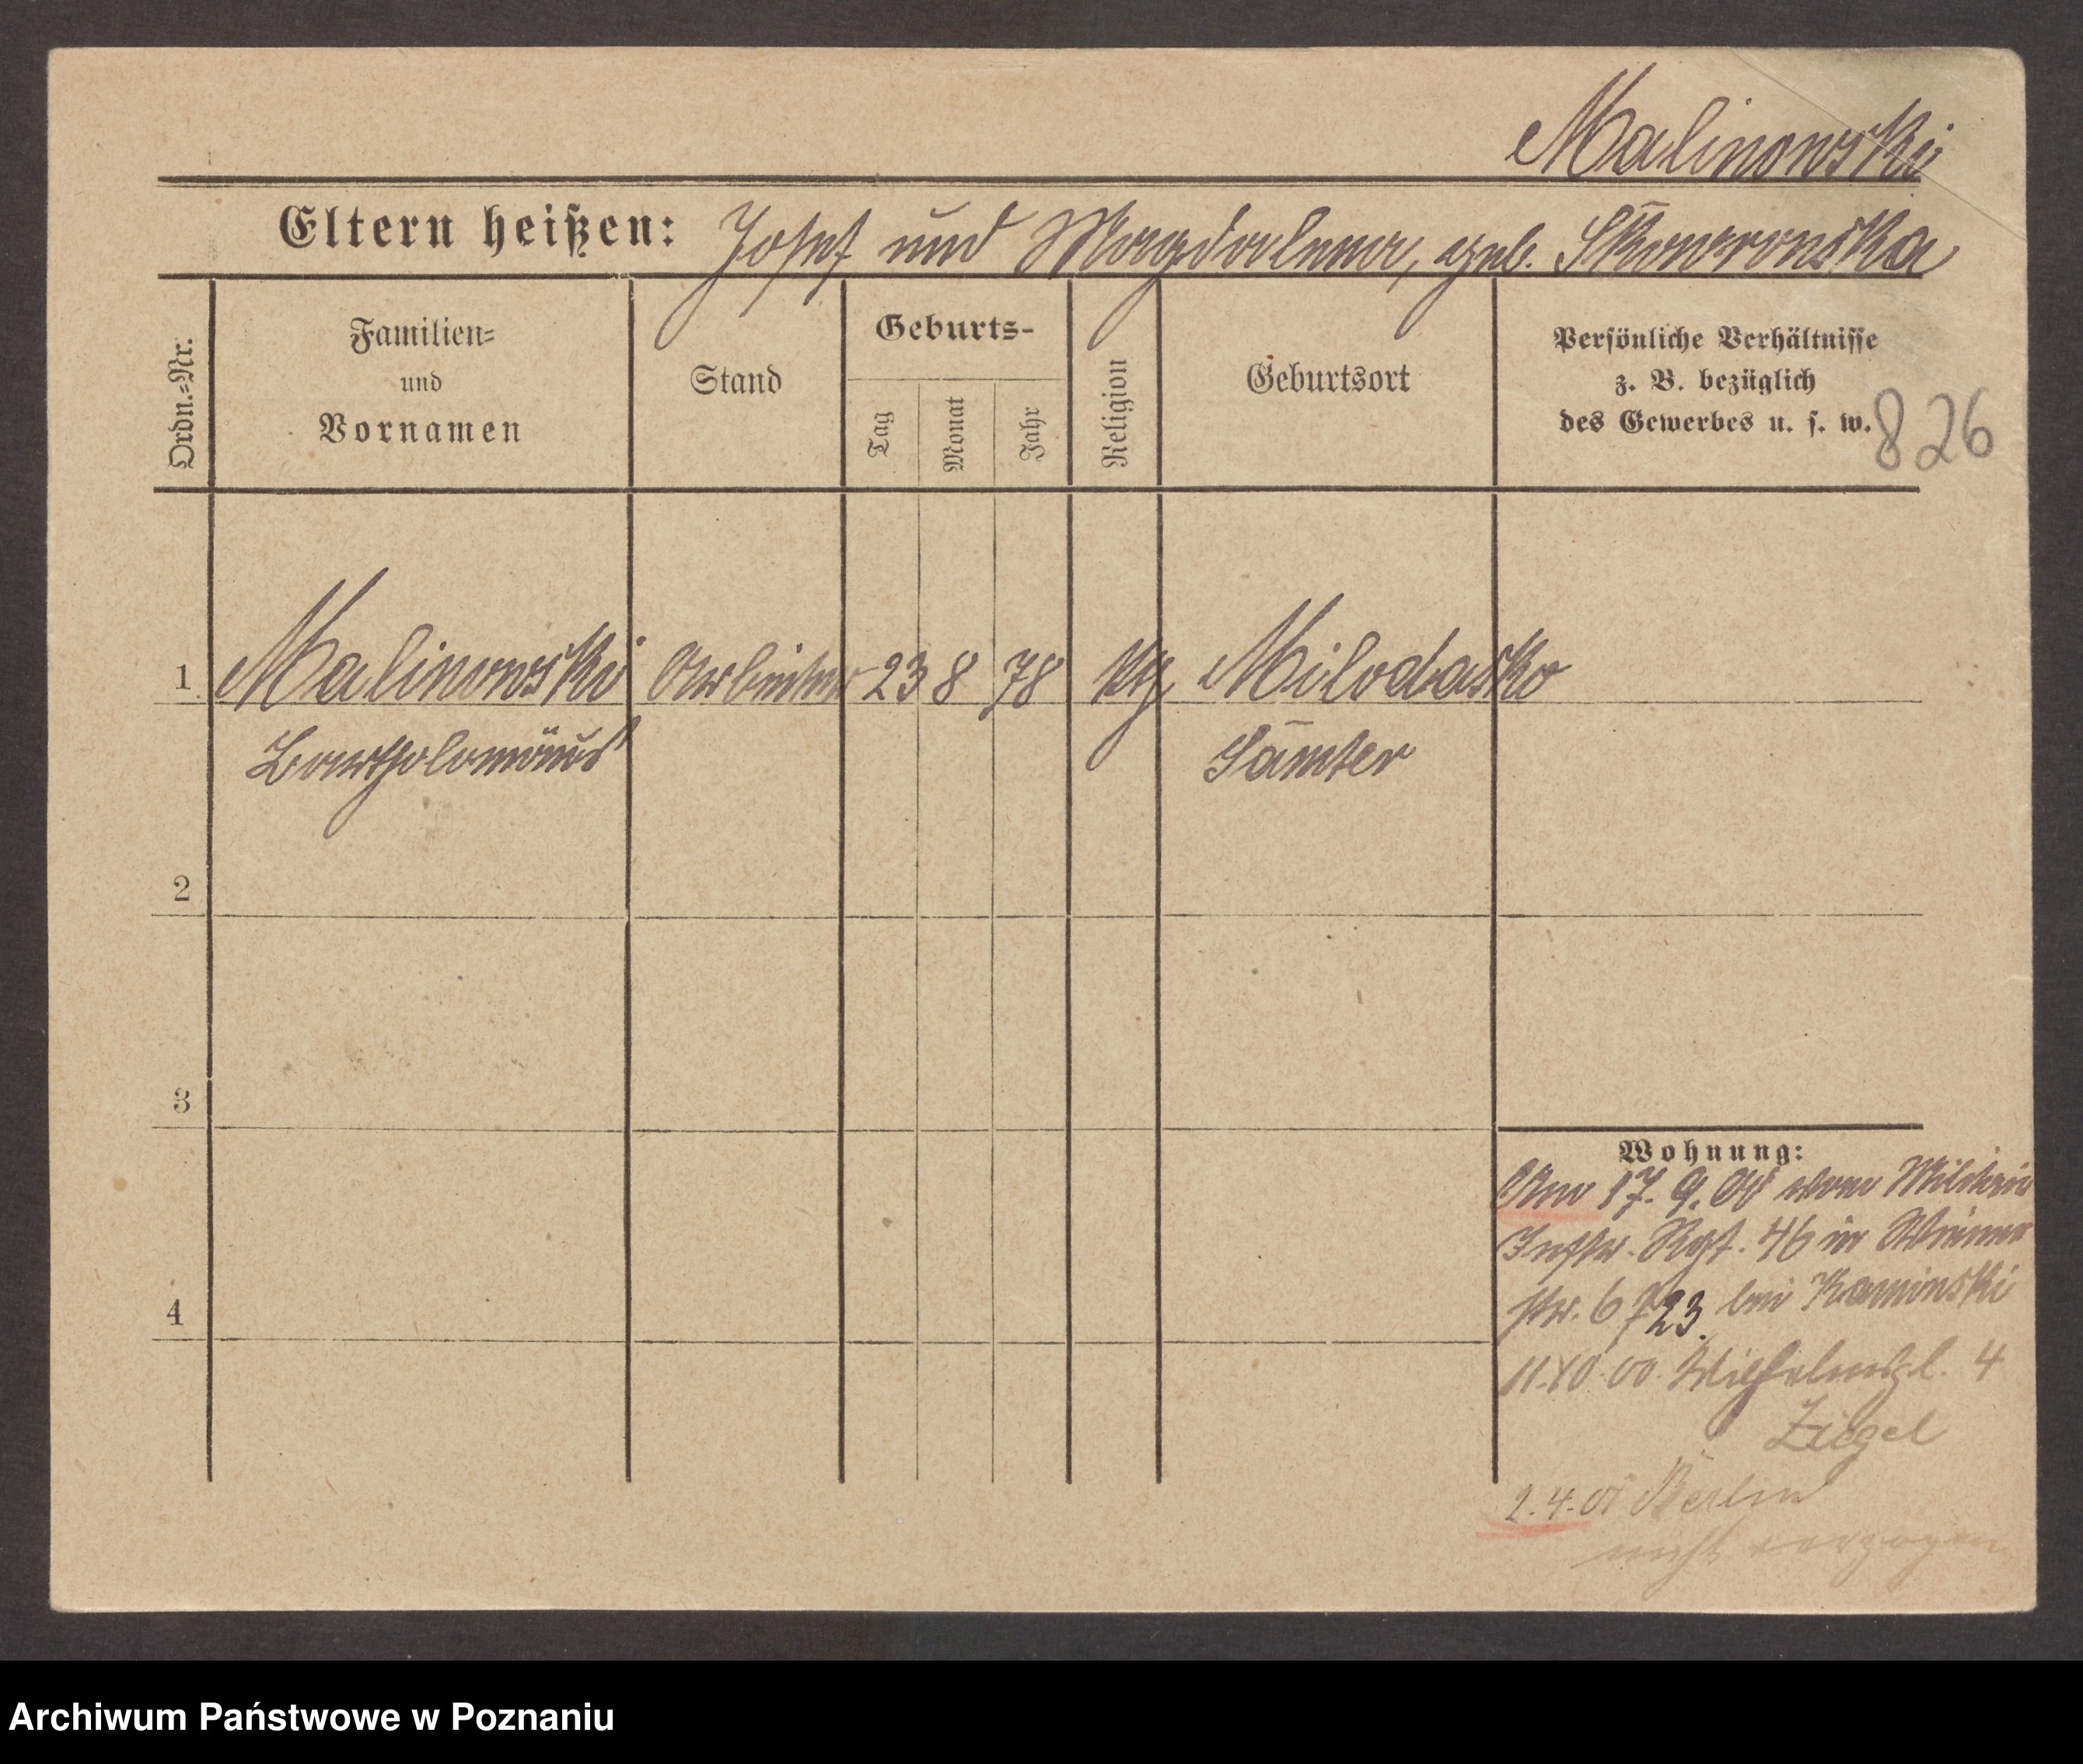 Malinowski
Eltern heißen: Josef und Magdalena, geb. Skowronska
Ordn.=Nr.
Familien=
und
Vornamen
Stand
Geburts-
Tag
Monat
Jahr
Religion
Geburtsort
Persönliche Verhältnisse
z. B. bezüglich
des Gewerbes u. s. w.
826
1 Malinowski Arbeiter 23 8 78 kth Milodasko
Bartholomäus Samter
2
3
4
Wohnung:
Am 17. 9. 00 vom Militair
Inftr. Rgt. 46 in
str. 6 23. bei Kaminski
11.10.00. Wilhelmspl. 4
Ziegel
2.4.01 Berlin
nicht verzogen
Archiwum Państwowe w Poznaniu